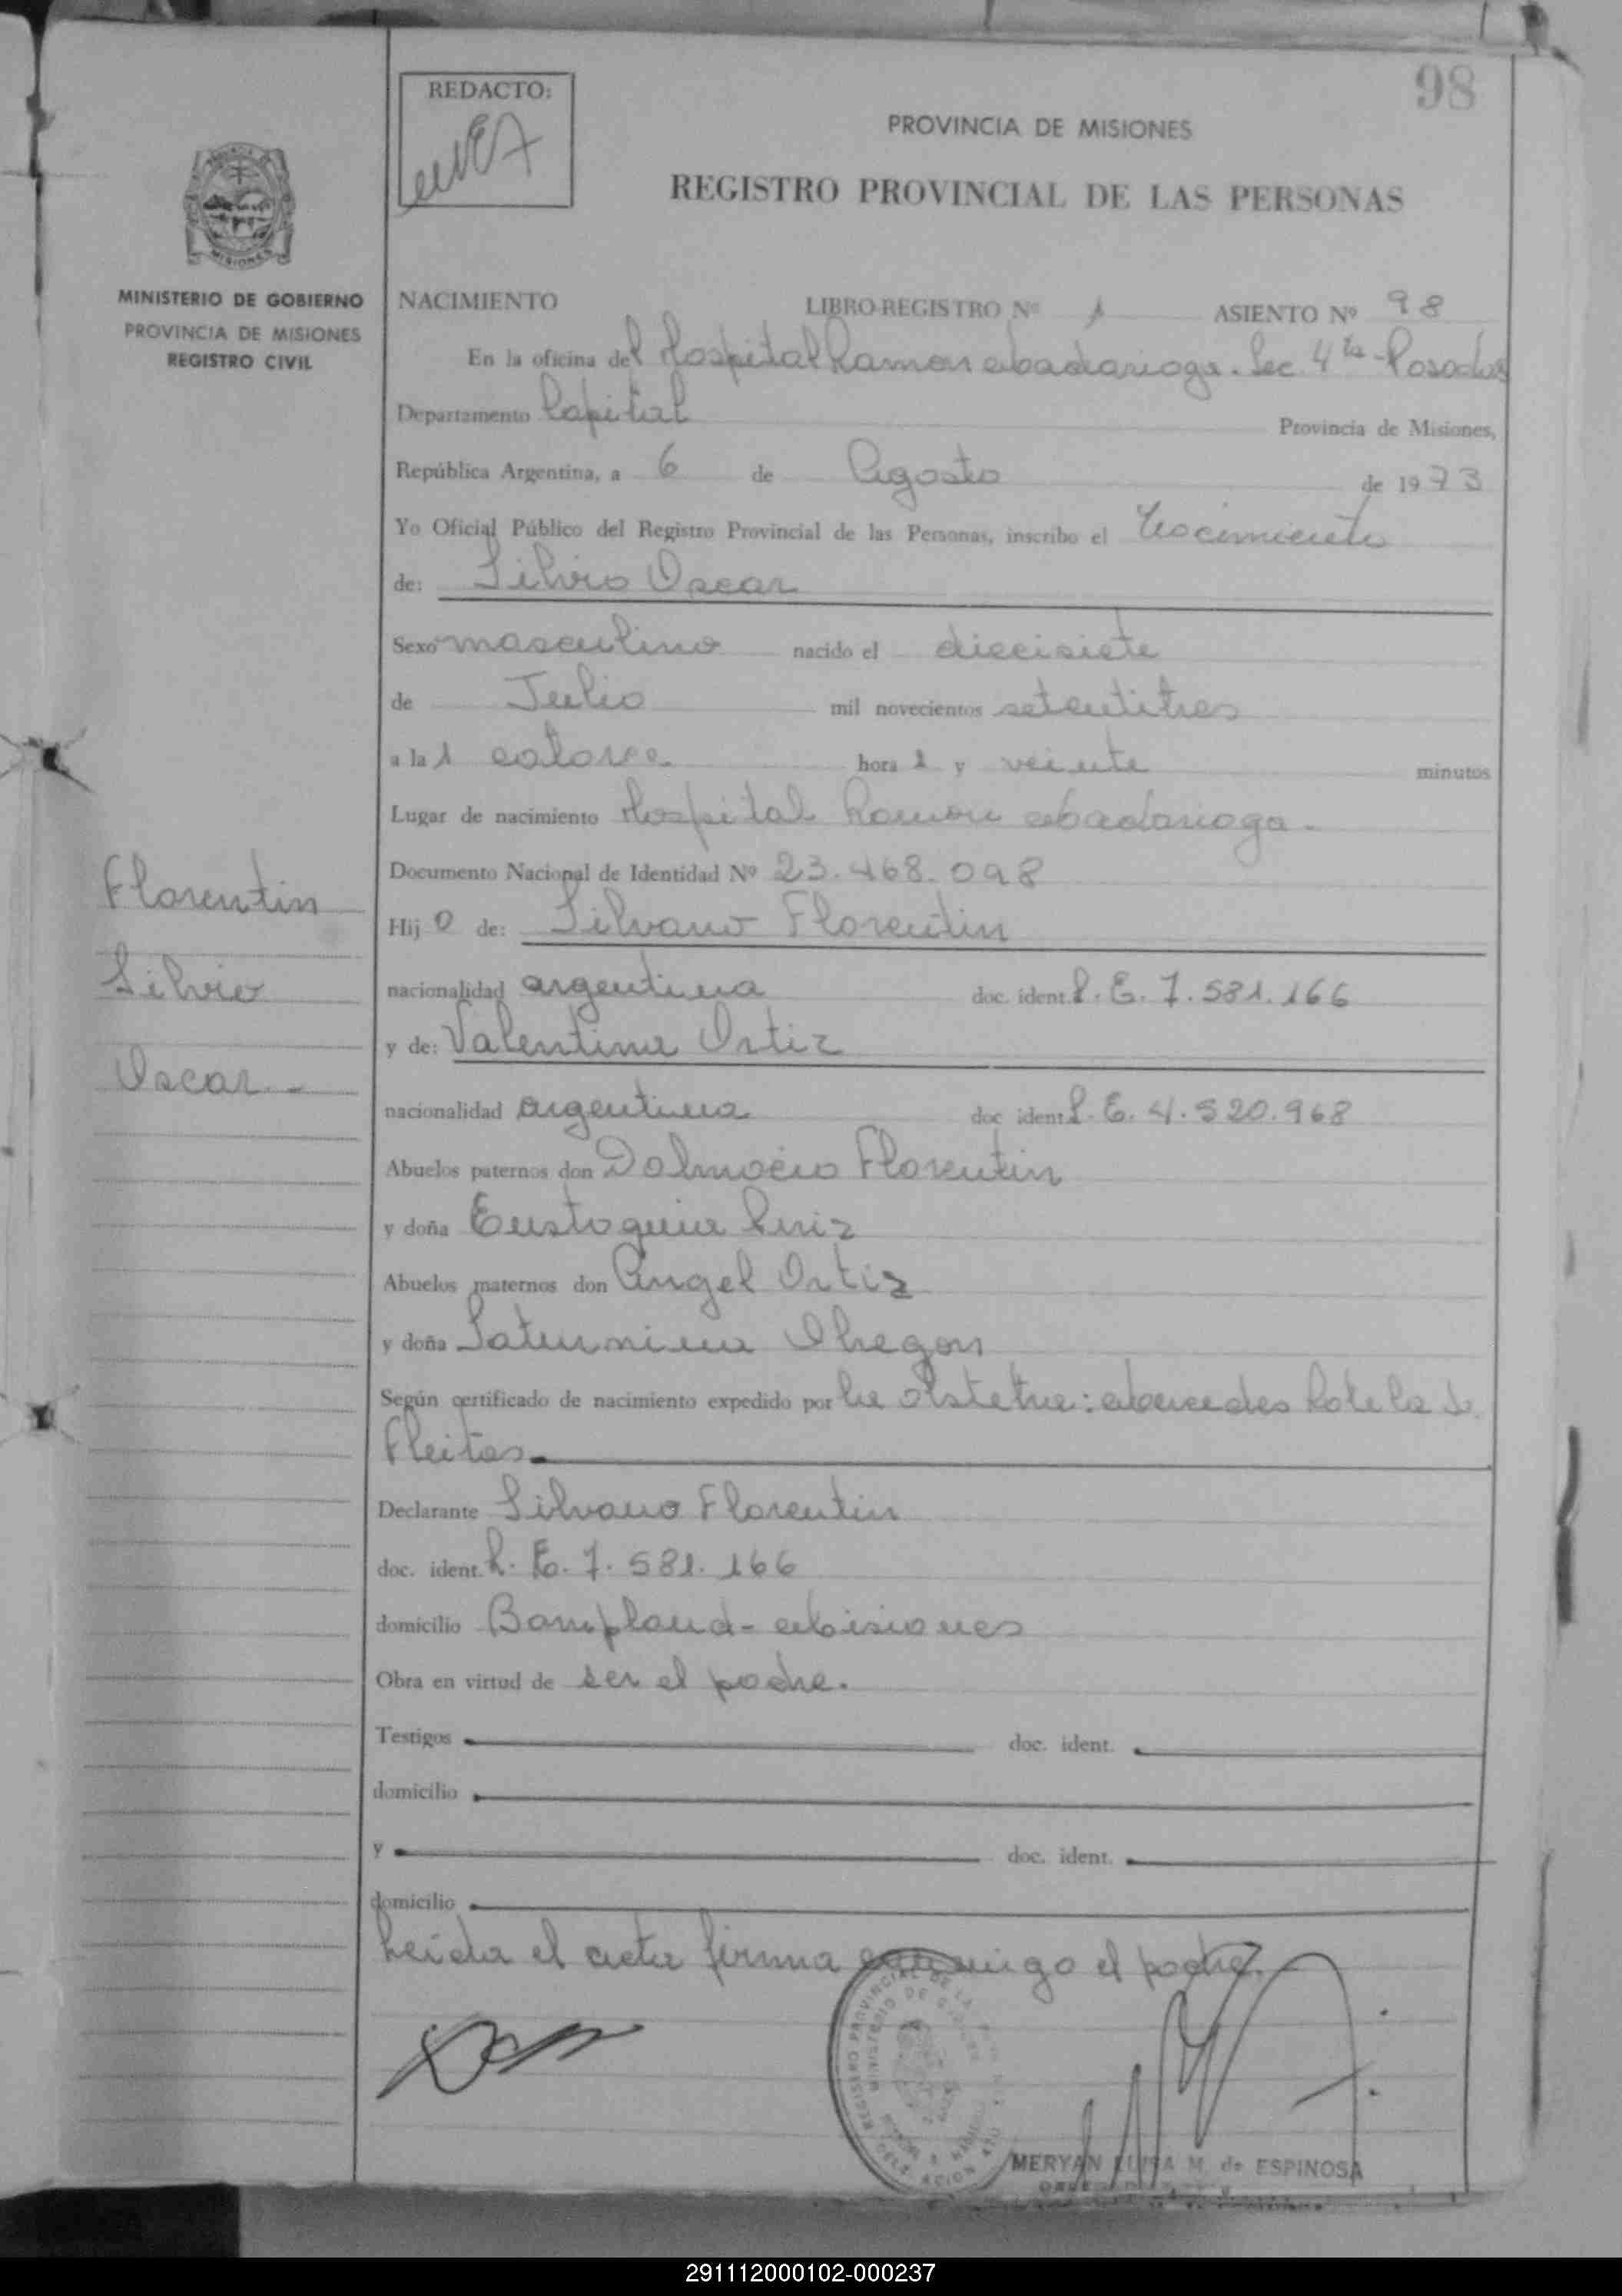 98
REDACTO:
PROVINCIA DE MISIONES
REGISTRO PROVINCIAL DE LAS PERSONAS
MINISTERIO DE GOBIERNO
PROVINCIA DE MISIONES
REGISTRO CIVIL
NACIMIENTO LIBRO-REGISTRO Nº 1 ASIENTO Nº 98
En la oficina del Hospital Ramon Madariaga. Sec. 4ta - Posadas
Departamento Capital Provincia de Misiones,
República Argentina, a 6 de Agosto de 1973
Yo Oficial Público del Registro Provincial de las Personas, inscribo el Nacimiento
de: Silvio Oscar
Sexo masculino nacido el diecisiete
de Julio mil novecientos setentitres
a las catorce horas y veinte minutos
Lugar de nacimiento Hospital Ramon Madariaga.
Documento Nacional de Identidad Nº 23.468.098
Hijo de: Silvano Florentin
nacionalidad argentina doc. ident. L.E. 7.581.166
y de: Valentina Ortiz
nacionalidad argentina doc ident L.E. 4.520.968
Abuelos paternos don Dalmacio Florentin
y doña Eustoquia Ruiz
Abuelos maternos don Angel Ortiz
y doña Saturnina Obregon
Según certificado de nacimiento expedido por la Obstetra: Mercedes Rotela de
Fleitas
Declarante Silvano Florentin
doc. ident. L.E. 7.581.166
domicilio Bompland - Misiones
Obra en virtud de ser el padre.
Testigos doc. ident.
domicilio
y doc. ident.
domicilio
Leída el acta firma conmigo el padre.
Florentin
Silvio
Oscar -
REGISTRO PROVINCIAL DE LA
MINISTERIO DE
MERYAN ELISA M. de ESPINOSA
291112000102-000237